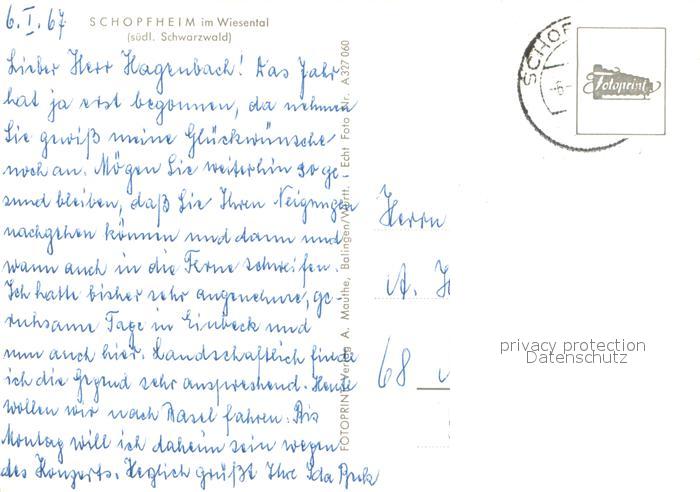 6.I.67
SCHOPFHEIM im Wiesental
(südl. Schwarzwald)
Lieber Herr Hagenbach! Das Jahr
hat ja erst begonnen, da nehmen
Sie gewiß meine Glückwünsche
noch an. Mögen Sie weiterhin so ge-
sund bleiben, daß Sie Ihren Neigungen
nachgehen können und dann und
wann auch in die Ferne schweifen.
Ich hatte bisher sehr angenehme, ge-
ruhsame Tage in Einbeck und
nun auch hier. Landschaftlich finde
ich die Gegend sehr ansprechend. Heute
wollen wir nach Basel fahren. Bis
Montag will ich daheim sein wegen
des Konzerts. Herzlich grüßt Ihre Ida
FOTOPRINT-Verlag A. Mauthe, Balingen/Württ. Echt Foto Nr. A327 060
SCHOPF
-6-
Fotoprint
Herrn
A. H
68
privacy protection
Datenschutz